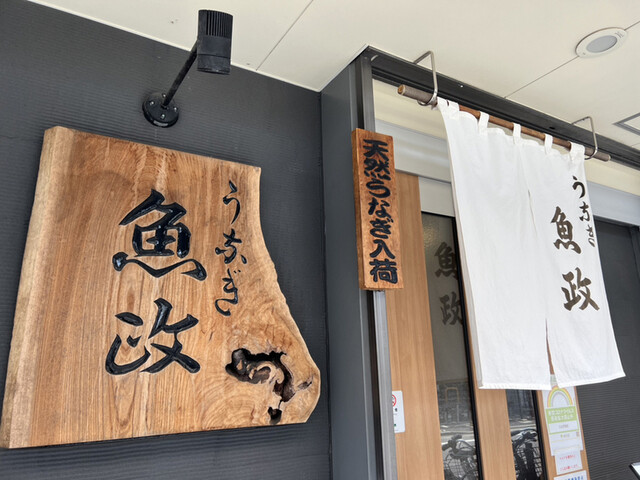 うなぎ
魚政
天然うなぎ入荷
うなぎ
魚政
魚政